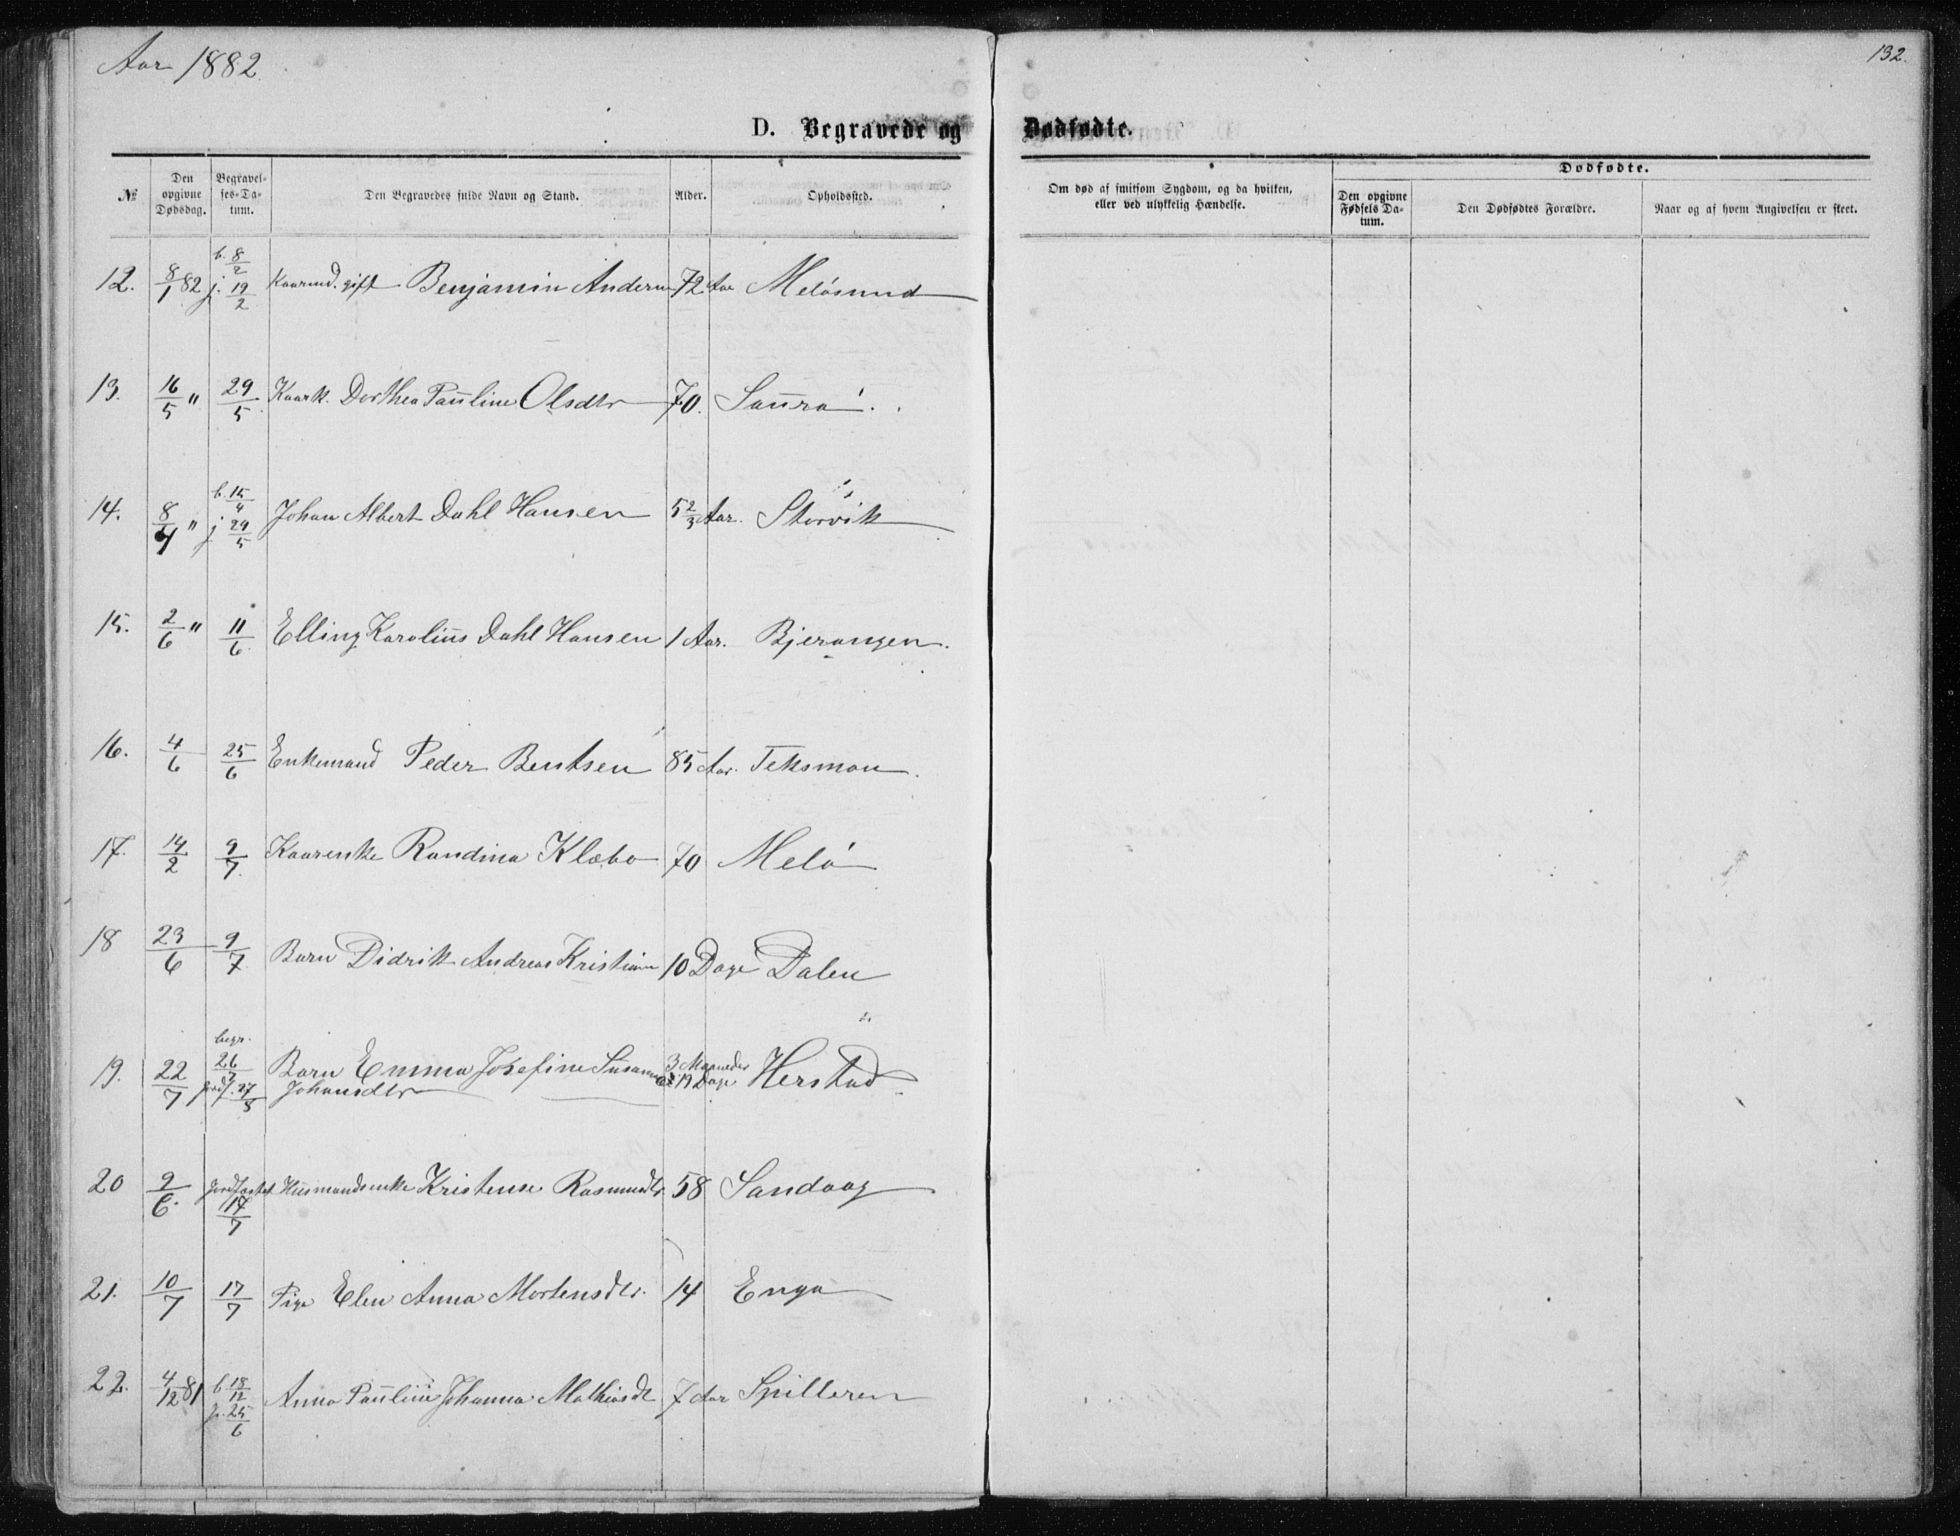 Aar 1882.
132.
D. Begravede og Dødfødte.
№ Den opgivne Dødsdag. Begravelses-Datum. Den Begravedes fulde Navn og Stand. Alder. Opholdssted. Om død af smitsom Sygdom, og da hvilken, eller ved ulykkelig Hændelse. Dødfødte. Den opgivne Fødsels Datum. Den Dødfødtes Forældre. Naar og af hvem Angivelsen er skeet.
12. 8/1 82 b. 8/2 j. 19/2 Kaarmd. gift Benjamin Andersen 72 Aar Melösund
13. 16/5 " 29/5 Kaark. Dorthea Pauline Olsdtr 70. Saurö.
14. 8/4 " b. 15/4 j. 29/5 Johan Albert Dahl Hansen 5 2/3 Aar. Storvik
15. 2/6 " 11/6 Elling Karolius Dahl Hansen 1 Aar. Bjerangen.
16. 4/6 25/6 Enkemand Peder Bentsen 85 Aar. Teksmon.
17. 14/2 9/7 Kaarenke Randina Klæbo 70 Melö
18 23/6 9/7 Barn Didrik Andreas Kristian 10 Dage Dalen
19. 22/7 begr. 26/7 jordf. 27/8 Barn Emma Josefine Susanna Johansdtr 3 Maaneder 19 Dage Herstad
20 9/6. jordfæstet 14/7 Husmandsenke Kristense Rasmusdtr 58 Sandaag
21. 10/7 17/7 Pige Elen Anna Mortensdtr. 14 Enga
22. 4/12 81 b. 18/12 j. 25/6 Anna Pauline Johanna Mathiasdt 7 Aar Spilderen